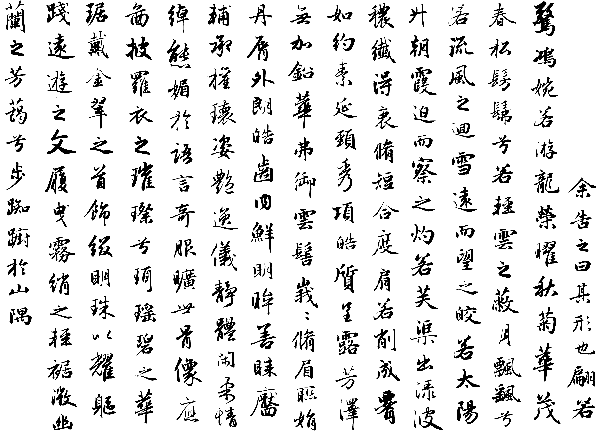 余告之曰其形也翩若
驚鴻婉若游龍榮耀秋菊華茂
春松髣髴兮若輕雲之蔽月飄飄兮
若流風之迴雪遠而望之皎若太陽
升朝霞迫而察之灼若芙渠出淥波
穠纖得衷脩短合度肩若削成腰
如約素延頸秀項皓質呈露芳澤
無加鉛華弗御雲髻峩〻脩眉聯娟
丹脣外朗皓齒内鮮明眸善睞靨
輔承權瓌姿艷逸儀靜體閑柔情
綽態媚於語言奇服曠世骨像應
圖披羅衣之璀璨兮珥瑤碧之華
琚戴金翠之首飾綴明珠以耀軀
踐遠遊之文履曳霧綃之輕裾微幽
蘭之芳藹兮步踟躕於山隅